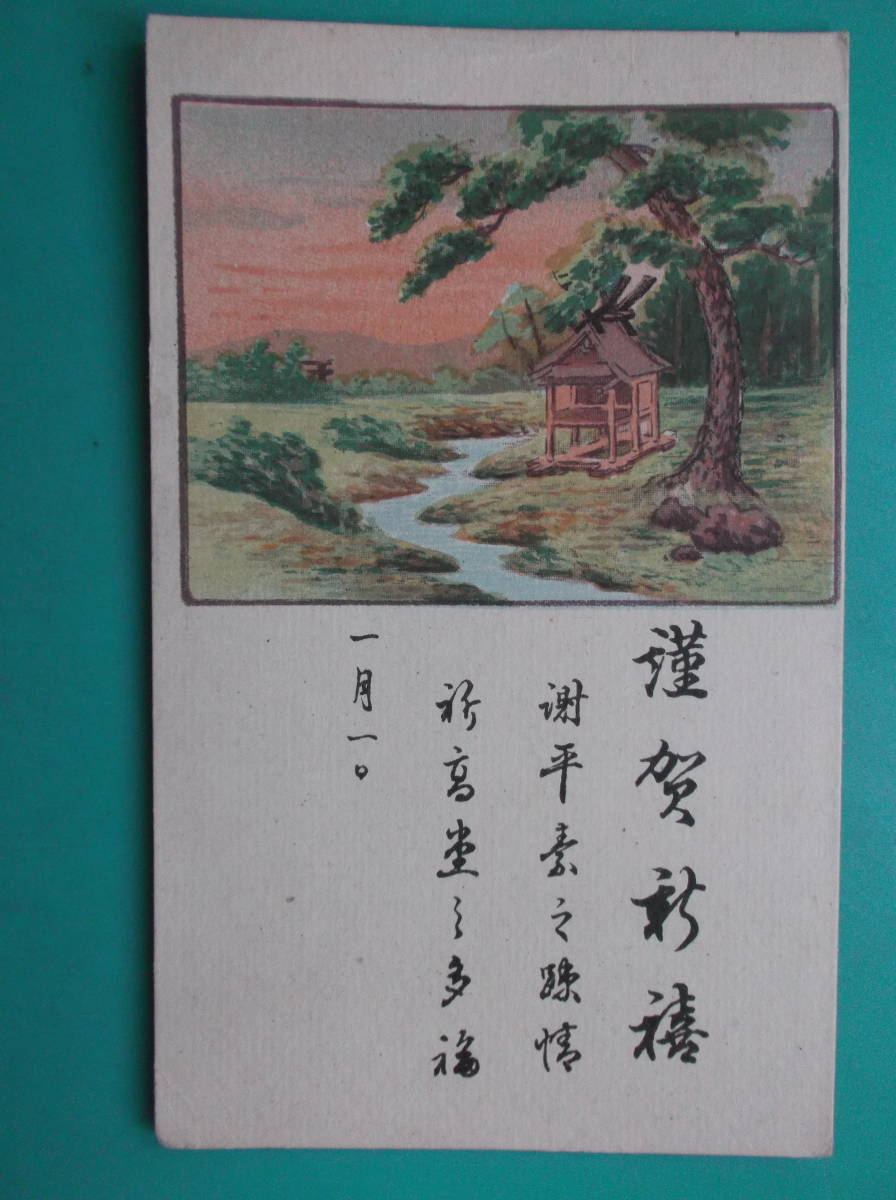 謹賀新禧
謝平素之踈情
祈高堂之多福
一月一日